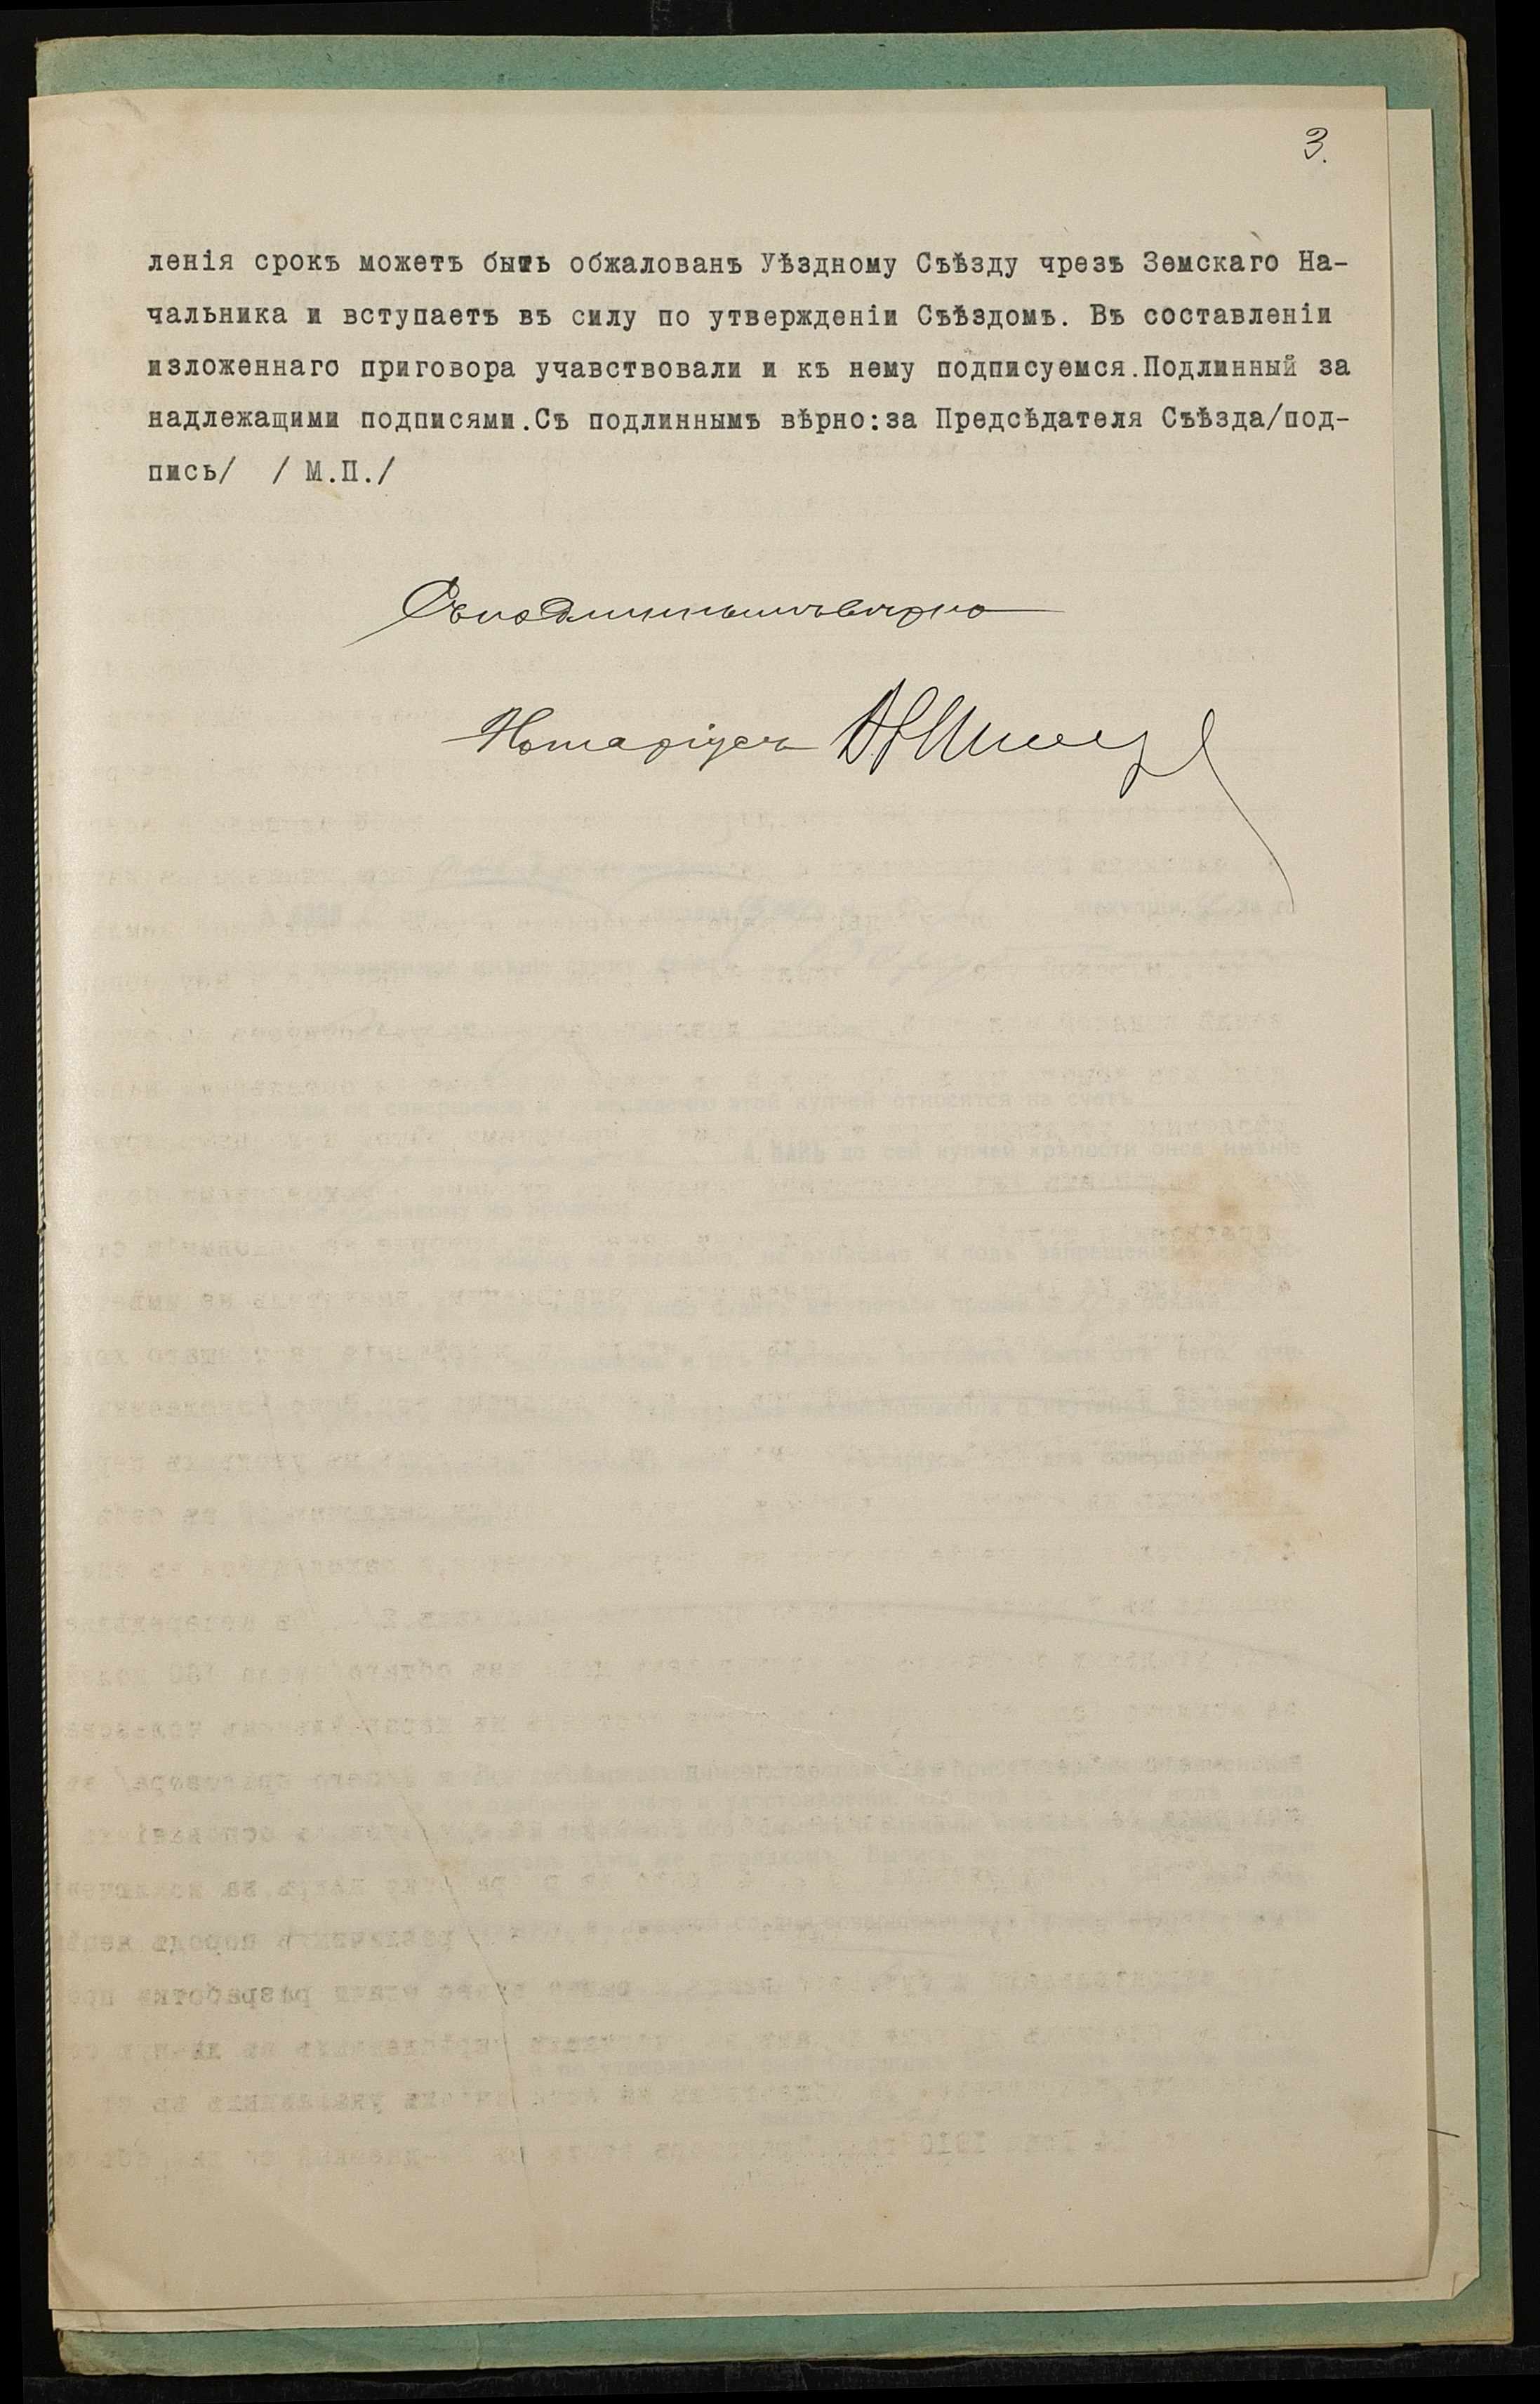 3.
ленія срокъ можетъ быть обжалованъ Уѣздному Съѣзду чрезъ Земскаго На-
чальника и вступаетъ въ силу по утвержденіи Съѣздомъ. Въ составленіи
изложеннаго приговора учавствовали и къ нему подписуемся.Подлинный за
надлежащими подписями.Съ подлиннымъ вѣрно:за Предсѣдателя Съѣзда/под-
пись/ / М.П./
Съ подлиннымъ вѣрно
Нотаріусъ